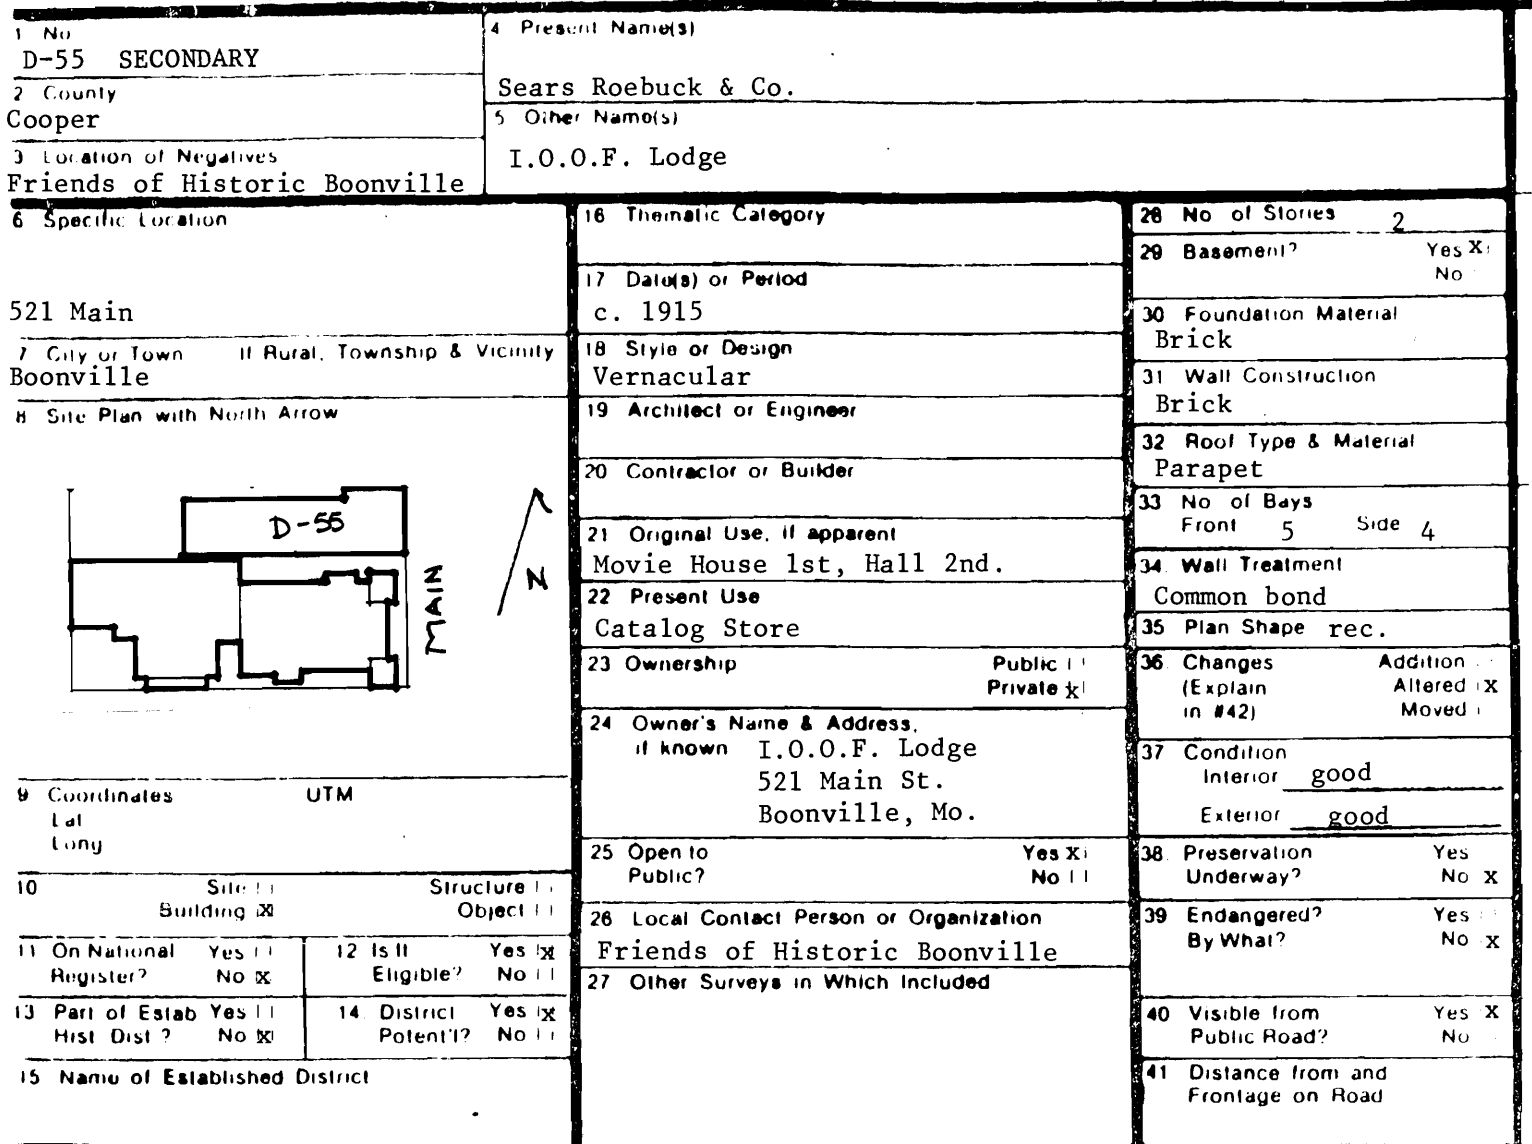 1 No
D-55 SECONDARY
2 County
Cooper
3 Location of Negatives
Friends of Historic Boonville
4 Present Name(s)
Sears Roebuck & Co.
5 Other Name(s)
I.O.O.F. Lodge
6 Specific Location
521 Main
7 City or Town If Rural, Township & Vicinity
Boonville
8 Site Plan with North Arrow
D-55
MAIN
N
9 Coordinates UTM
Lat
Long
10 Site Structure
Building X Object
11 On National Yes
Register? No X
12 Is It Yes X
Eligible? No
13 Part of Estab Yes
Hist Dist? No X
14 District Yes X
Potent'l? No
15 Name of Established District
16 Thematic Category
17 Date(s) or Period
c. 1915
18 Style or Design
Vernacular
19 Architect or Engineer
20 Contractor or Builder
21 Original Use, if apparent
Movie House 1st, Hall 2nd.
22 Present Use
Catalog Store
23 Ownership Public
Private x
24 Owner's Name & Address,
if known I.O.O.F. Lodge
521 Main St.
Boonville, Mo.
25 Open to Yes X
Public? No
26 Local Contact Person or Organization
Friends of Historic Boonville
27 Other Surveys in Which Included
28 No of Stories 2
29 Basement? Yes X
No
30 Foundation Material
Brick
31 Wall Construction
Brick
32 Roof Type & Material
Parapet
33 No of Bays
Front 5 Side 4
34 Wall Treatment
Common bond
35 Plan Shape rec.
36 Changes Addition
(Explain Altered X
in #42) Moved
37 Condition
Interior good
Exterior good
38 Preservation Yes
Underway? No X
39 Endangered? Yes
By What? No X
40 Visible from Yes X
Public Road? No
41 Distance from and
Frontage on Road